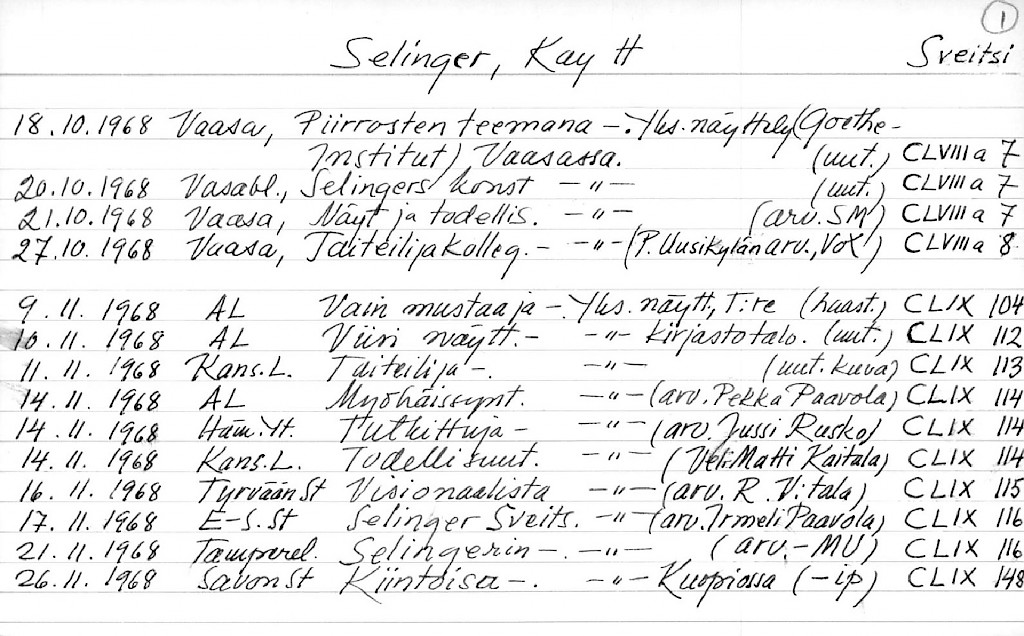 1
Selinger, Kay H Sveitsi
18.10.1968 Vaasa, Piirrosten teemana -. Yks. näyttely (Goethe-
Institut) Vaasassa. (uut.) CLVIII a 7
20.10.1968 Vasabl., Selingers konst -"- (uut.) CLVIII a 7
21.10.1968 Vaasa, Näyt ja todellis. -"- (arv. SM) CLVIII a 7
27.10.1968 Vaasa, Taiteilijakolleg. - -"- (P. Uusikylän arv., VoX) CLVIII a 8
9.11.1968 AL Vain mustaa ja -. Yks. näytt., T:re (haast.) CLIX 104
10.11.1968 AL Viiri näytt. - -"- Kirjastotalo. (uut.) CLIX 112
11.11.1968 Kans.L. Taiteilija -. -"- (uut. kuva) CLIX 113
14.11.1968 AL Myöhäissynt. -"- (arv. Pekka Paavola) CLIX 114
14.11.1968 Häm.Y. Tutkittuja - -"- (arv. Jussi Rusko) CLIX 114
14.11.1968 Kans.L. Todellisuut. -"- (Veli-Matti Kaitala) CLIX 114
16.11.1968 Tyrvään St Visionaalista -"- (arv. R. V:tala) CLIX 115
17.11.1968 E-S.St Selinger Sveits. -"- (arv. Irmeli Paavola) CLIX 116
21.11.1968 Tamperel. Selingerin -. -"- (arv. -MU) CLIX 116
26.11.1968 Savon St Kiintoisa -. -"- Kuopiossa (-ip) CLIX 148